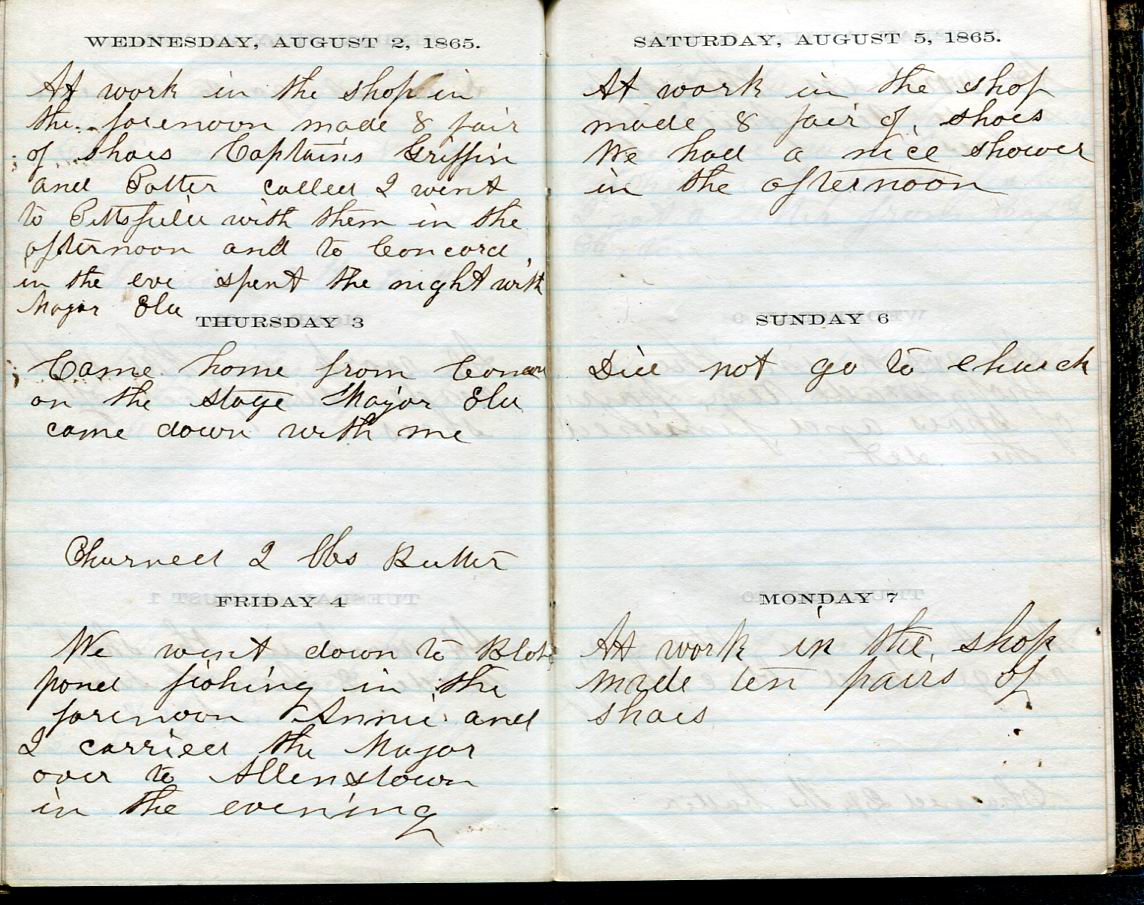 WEDNESDAY, AUGUST 2, 1865.
At work in the shop in
the forenoon made 8 pair
of shoes Captains Griffin
and Potter called I went
to Pittsfield with them in the
afternoon and to Concord
in the eve spent the night with
Major Ela
THURSDAY 3
Came home from Concord
on the stage Major Ela
came down with me
Churned 2 lbs Butter
FRIDAY 4
We went down to
pond fishing in the
forenoon Annie and
I carried the Major
over to Allenstown
in the evening
SATURDAY, AUGUST 5, 1865.
At work in the shop
made 8 pair of shoes
We had a nice shower
in the afternoon
SUNDAY 6
Did not go to church
MONDAY 7
At work in the shop
made ten pairs of
shoes